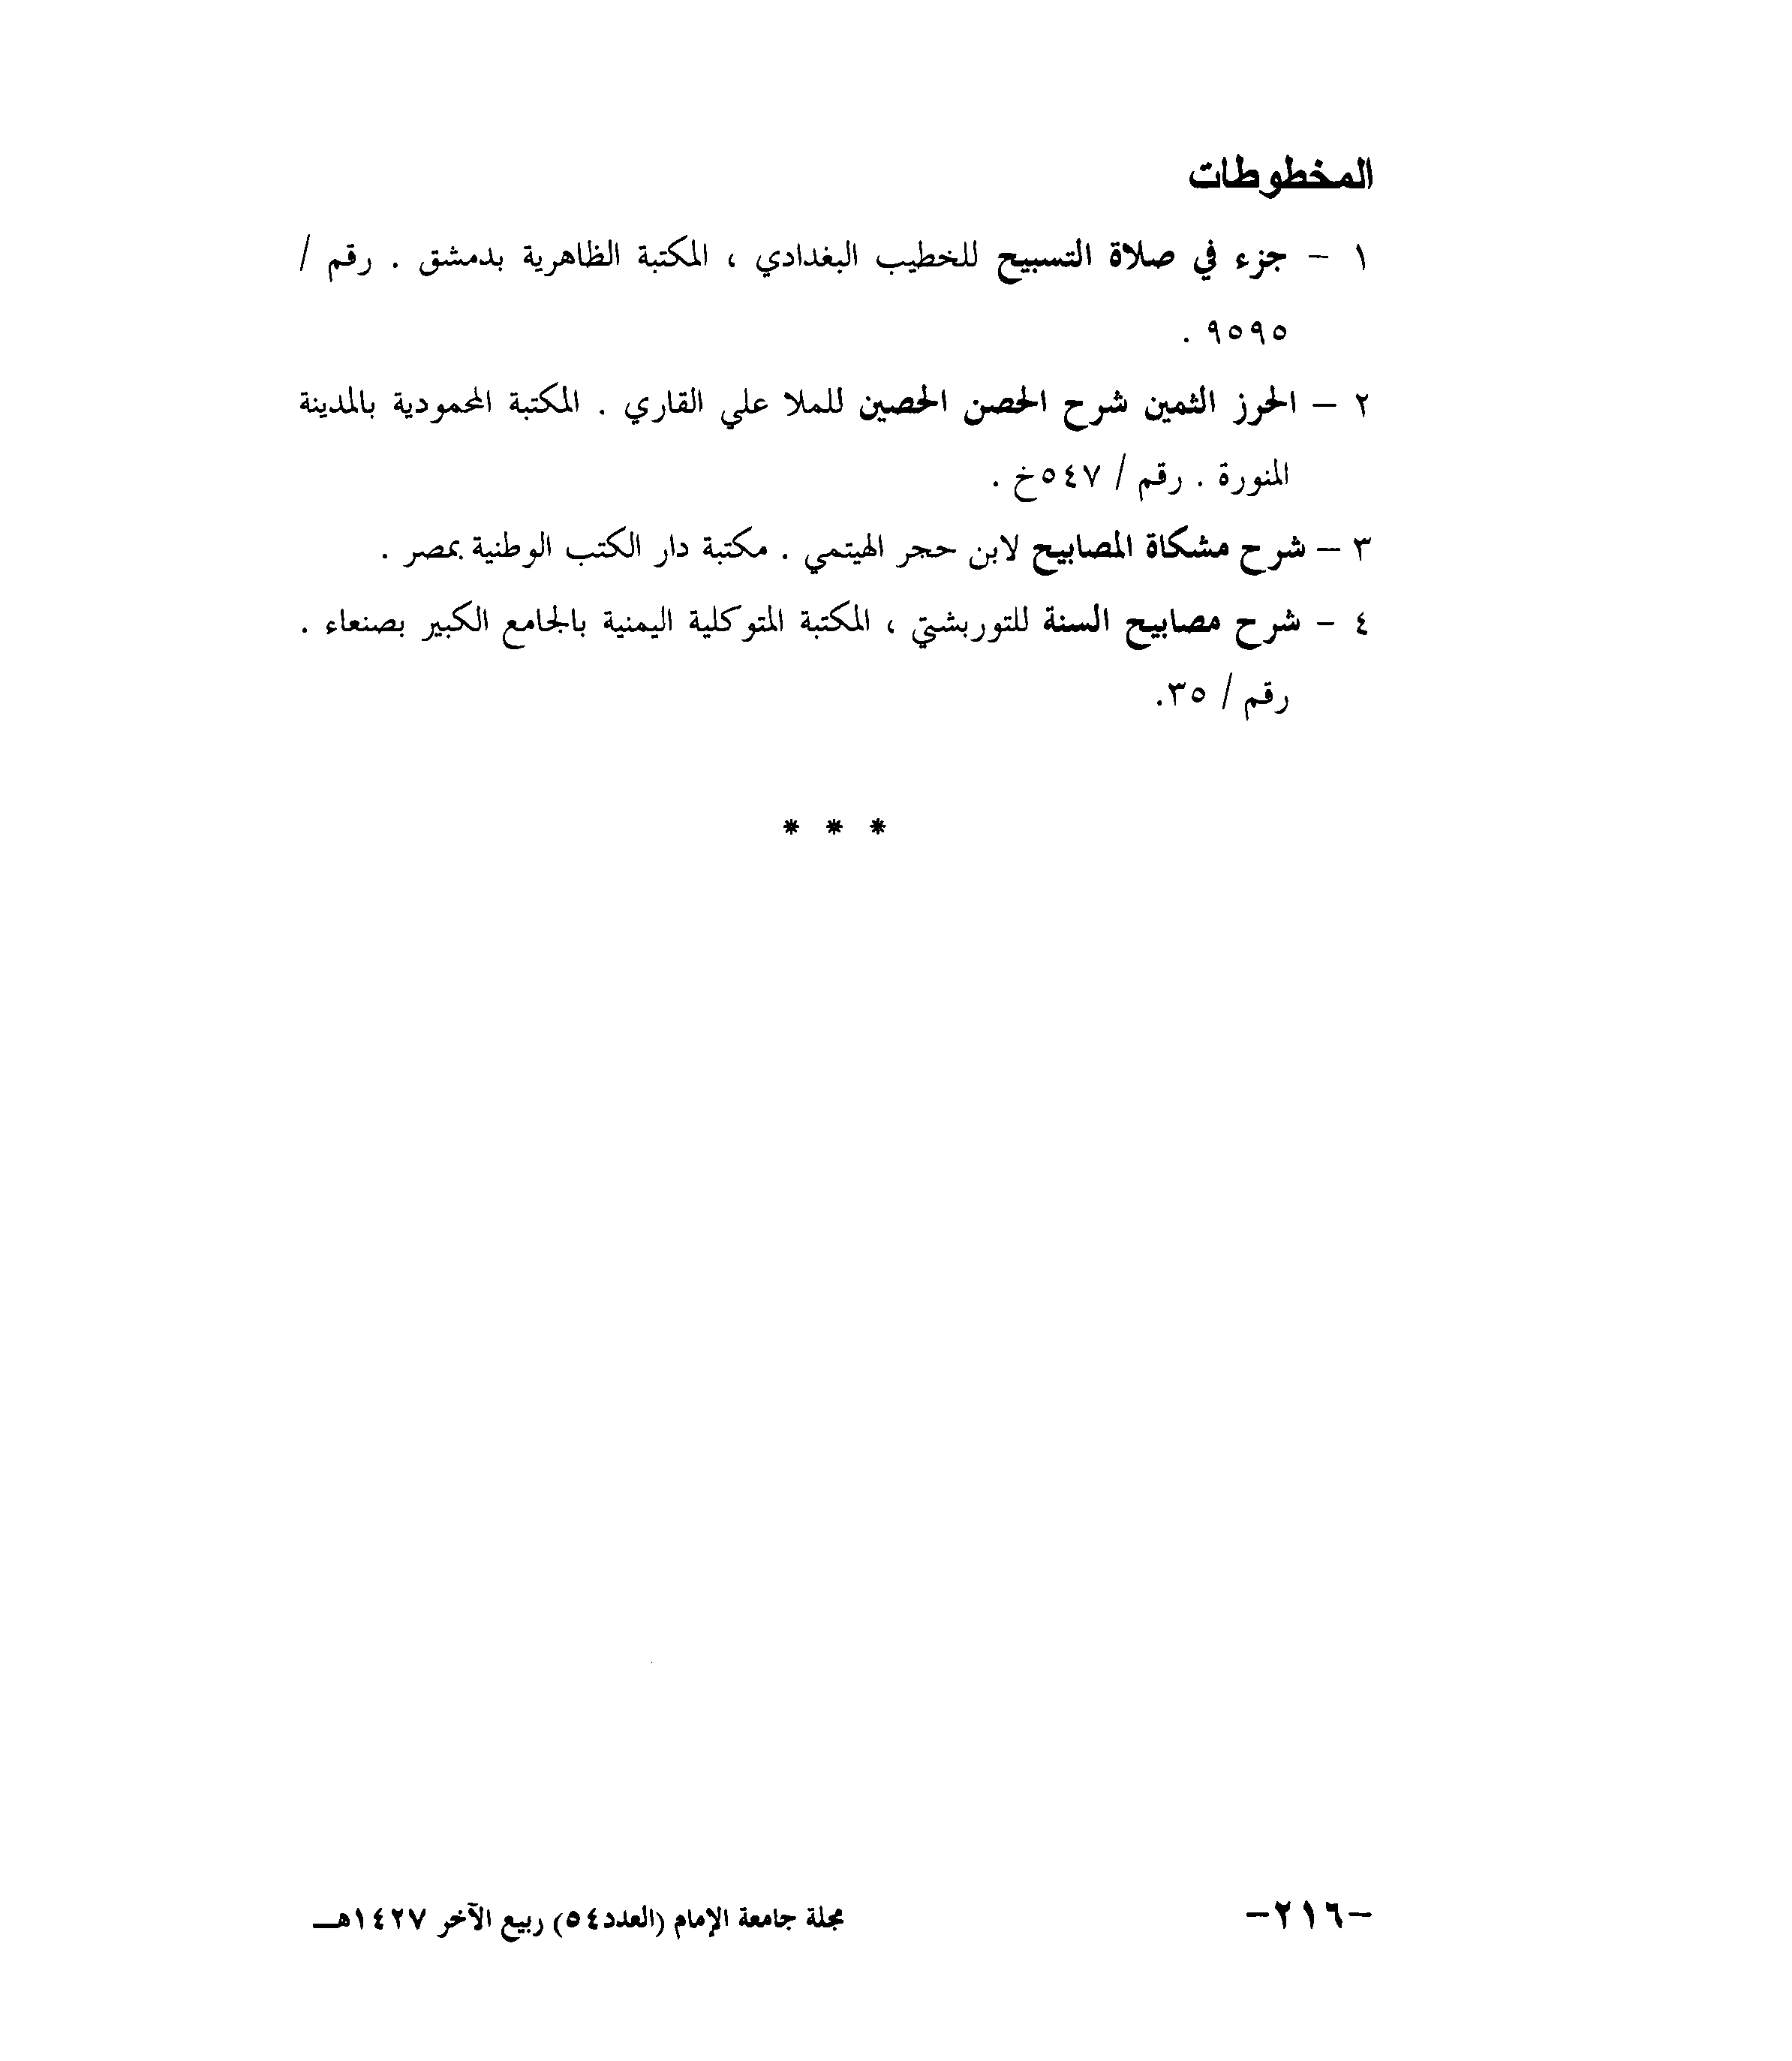 المخطوطات
١ - جزء في صلاة التسبيح للخطيب البغدادي ، المكتبة الظاهرية بدمشق . رقم /
٩٥٩٥ .
٢ – الحرز الثمين شرح الحصن الحصين للملا علي القاري . المكتبة المحمودية بالمدينة
المنورة . رقم / ٥٤٧خ .
٣ – شرح مشكاة المصابيح لابن حجر الهيتمي . مكتبة دار الكتب الوطنية بمصر .
٤ - شرح مصابيح السنة للتوربشتي ، المكتبة المتوكلية اليمنية بالجامع الكبير بصنعاء .
رقم / ٣٥.
* * *
-٢١٦-
مجلة جامعة الإمام (العدد٥٤) ربيع الآخر ١٤٢٧هـــ